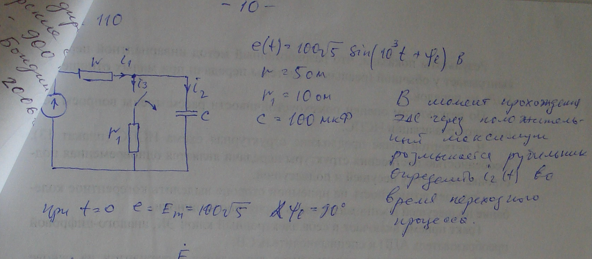 - 10 -
110
900
2006
e(t) = 100√5 sin(10³t + ψe) В
r = 5 ом
r₁ = 10 ом
C = 100 мкФ
r
i₁
i₃
i₂
r₁
C
В момент прохождения
ЭДС через положитель-
ный максимум
размыкается рубильник
определить i₂(t) во
время переходного
процесса.
при t=0 e = Em = 100√5 ψe = 90°
Ė